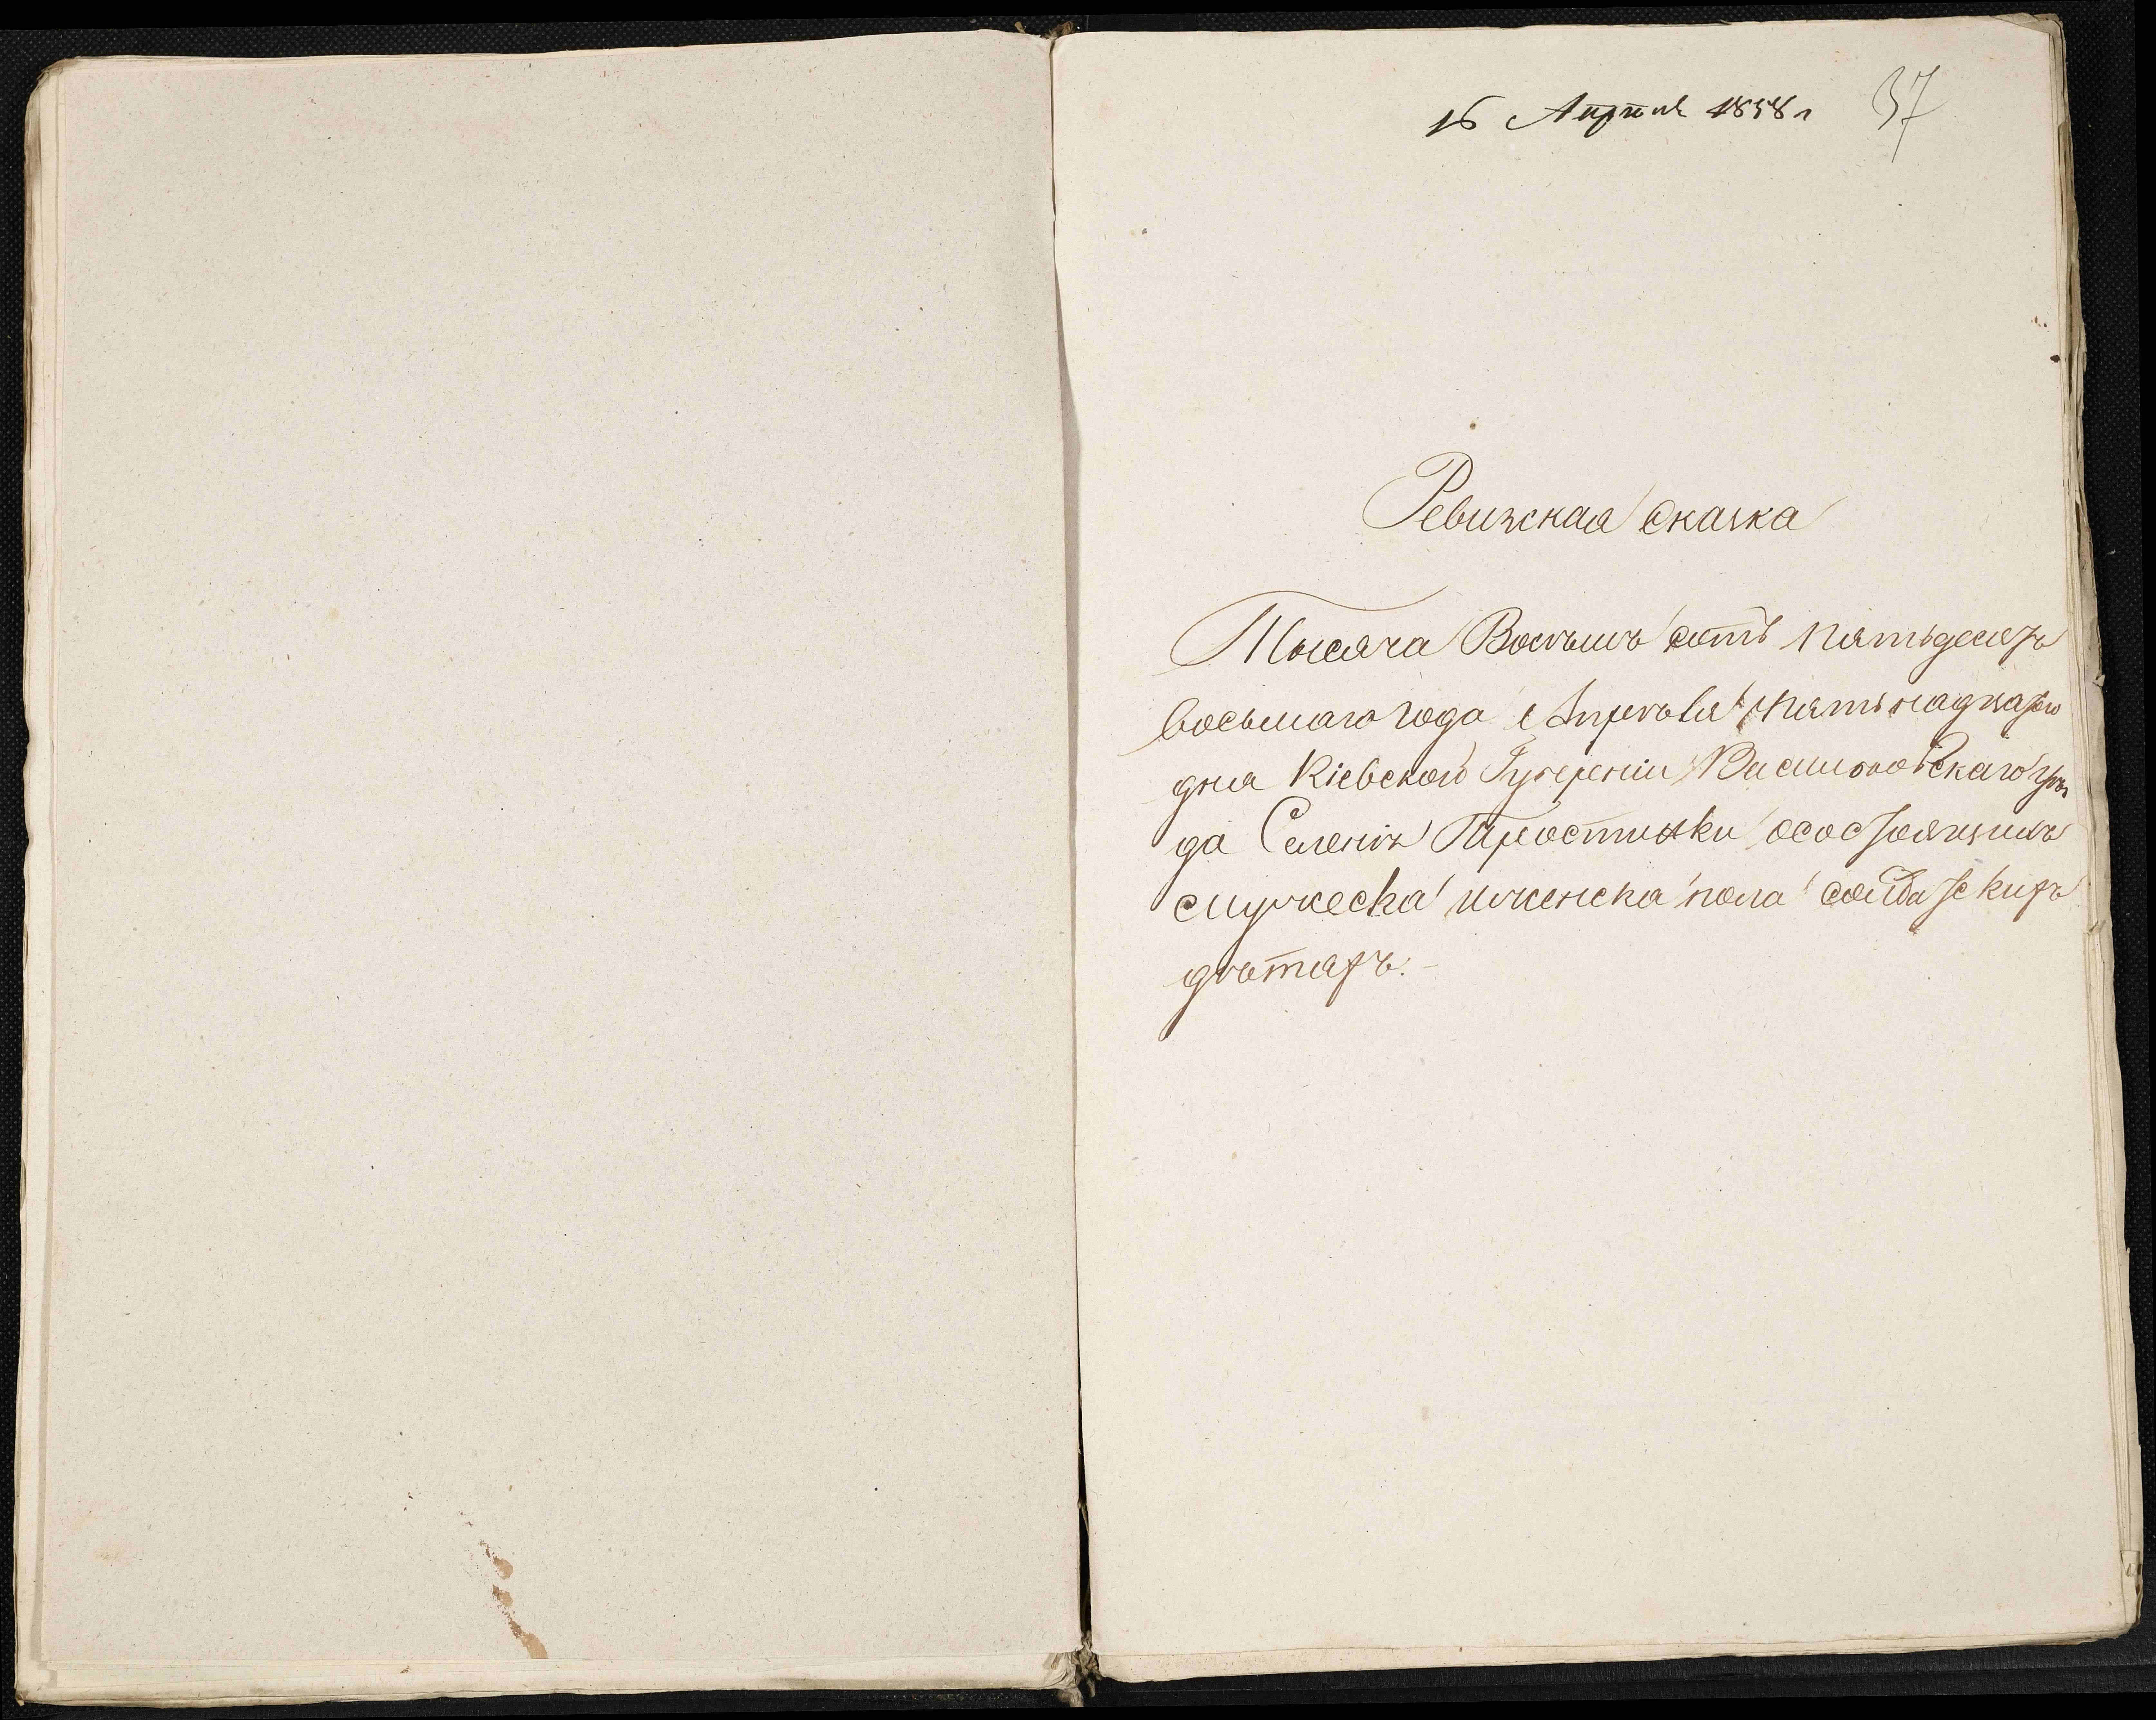 16 Апрѣля 1858 г
37
Ревизская сказка
Тысяча Восѣмъ сотъ пятьдесятъ
восьмаго года Апрѣля пятьнадцатаго
дня Кіевской Губерніи Васильковскаго уѣз
да Селенія Тростинки о состоящихъ
мужеска и женска пола солдатскихъ
дѣтяхъ.